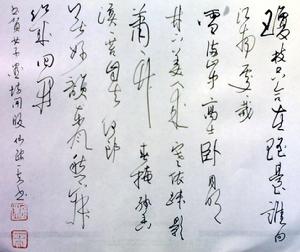 瓊枝只合在瑤臺誰向
江南處處栽
雪滿山中高士臥月明
林下美人來寒依疏影
蕭蕭竹春掩殘香
漠漠苔自去何郎
無好詠東風愁寂
幾回開